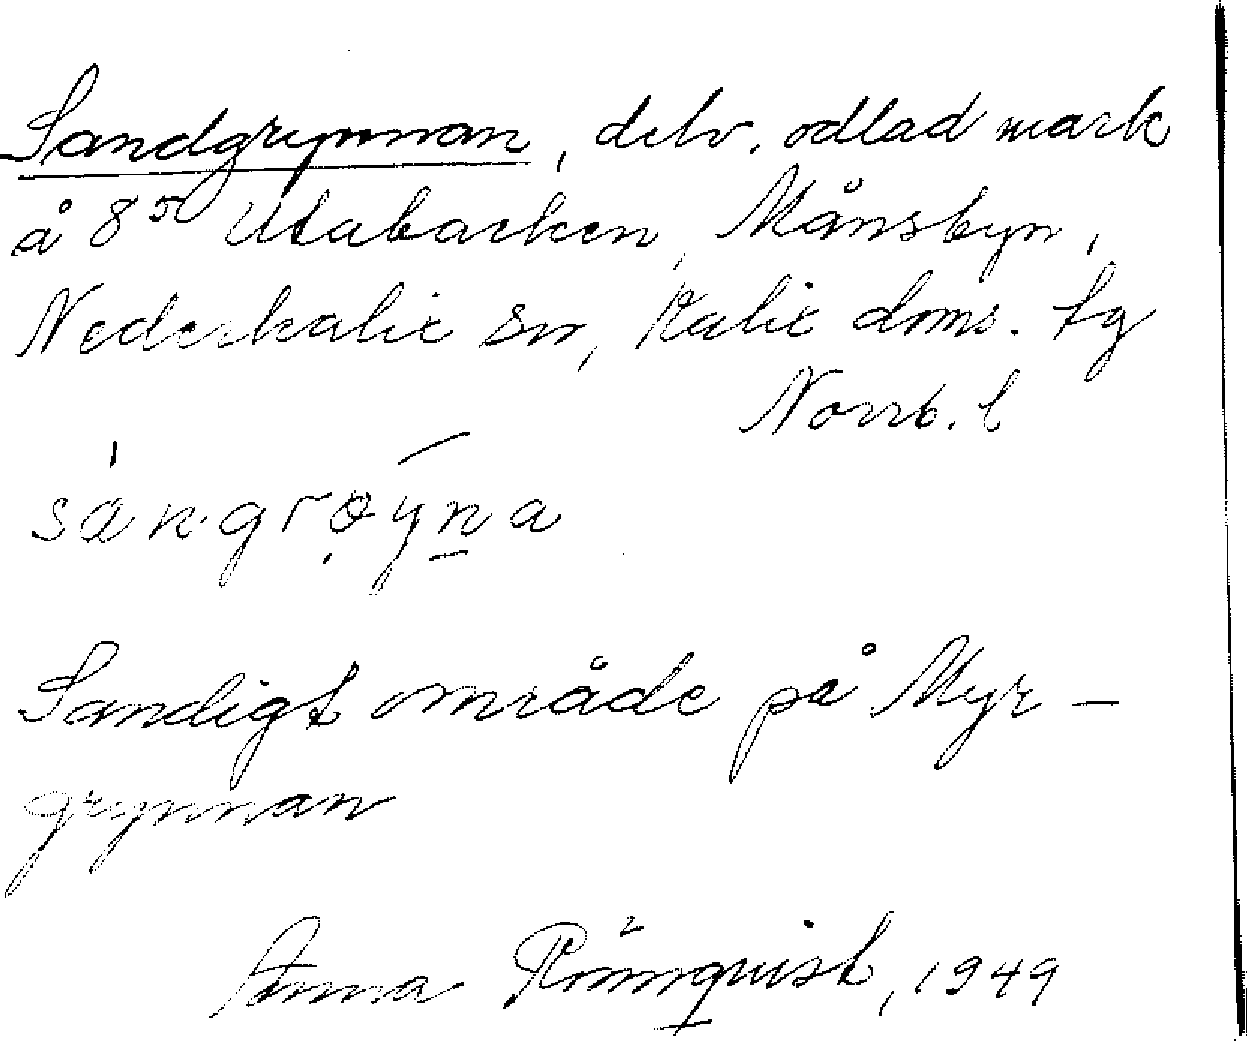 Sandgrynnan, delv. odlad mark
å 8⁵ Utabacken, Månsbyn,
Nederkalix sn, Kalix doms. tg
Norrb. l
Sandigt område på Myr-
grynnan
Anna Rönnquist, 1949